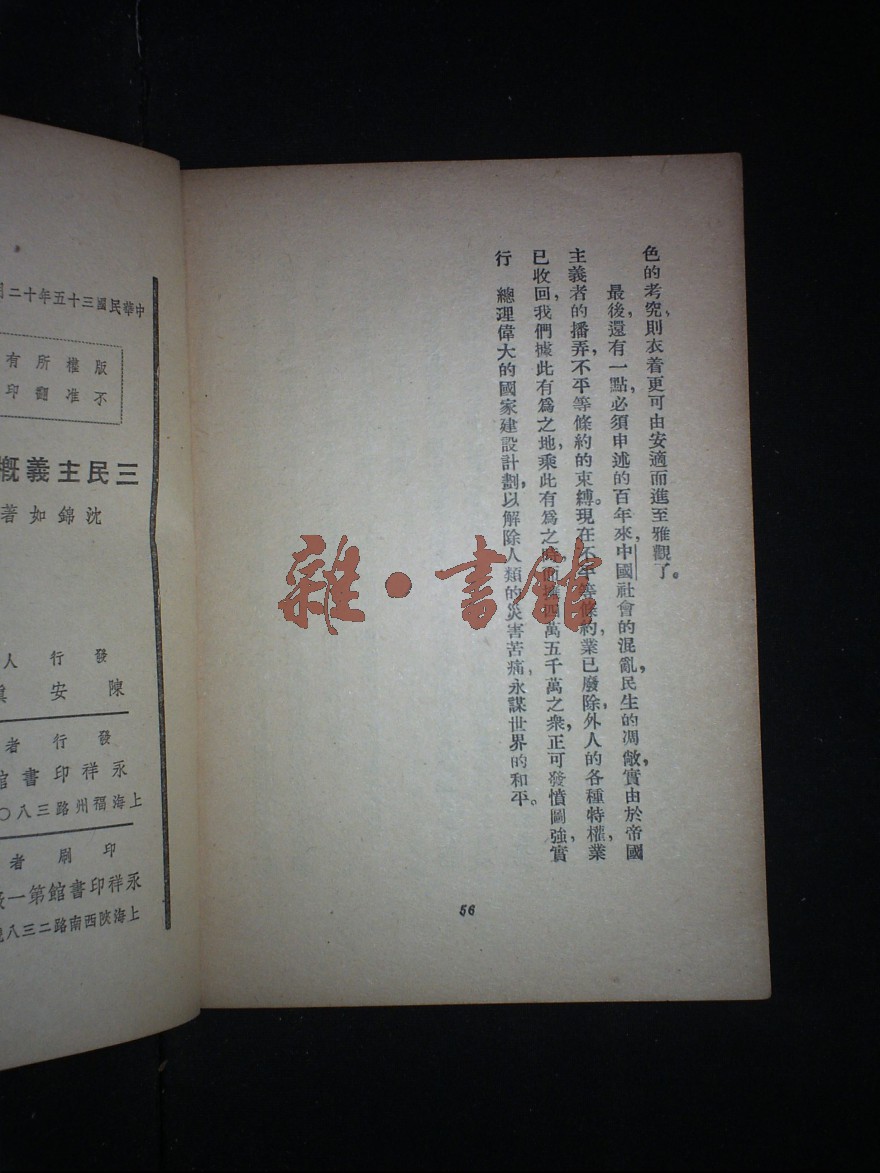 色的考究、則衣着更可由安適而進至雅觀了。
最後,還有一點,必須申述的百年來,中國社會的混亂,民生的凋敝,實由於帝國
主義者的播弄,不平等條約的束縛。現在不平等條約,業已廢除,外人的各種特權,業
已收回,我們據此有爲之地,乘此有爲之時,而擁四萬五千萬之衆,正可發憤圖強,實
行 總理偉大的國家建設計劃,以解除人類的災害苦痛,永謀世界的和平。
56
雜·書館
中華民國三十五年十二
版權所有
不准翻印
三民主義概
沈錦如著
發行人
陳安
發行者
永祥印書館
上海福州路三八〇
印刷者
永祥印書館第一
上海陝西南路二三八